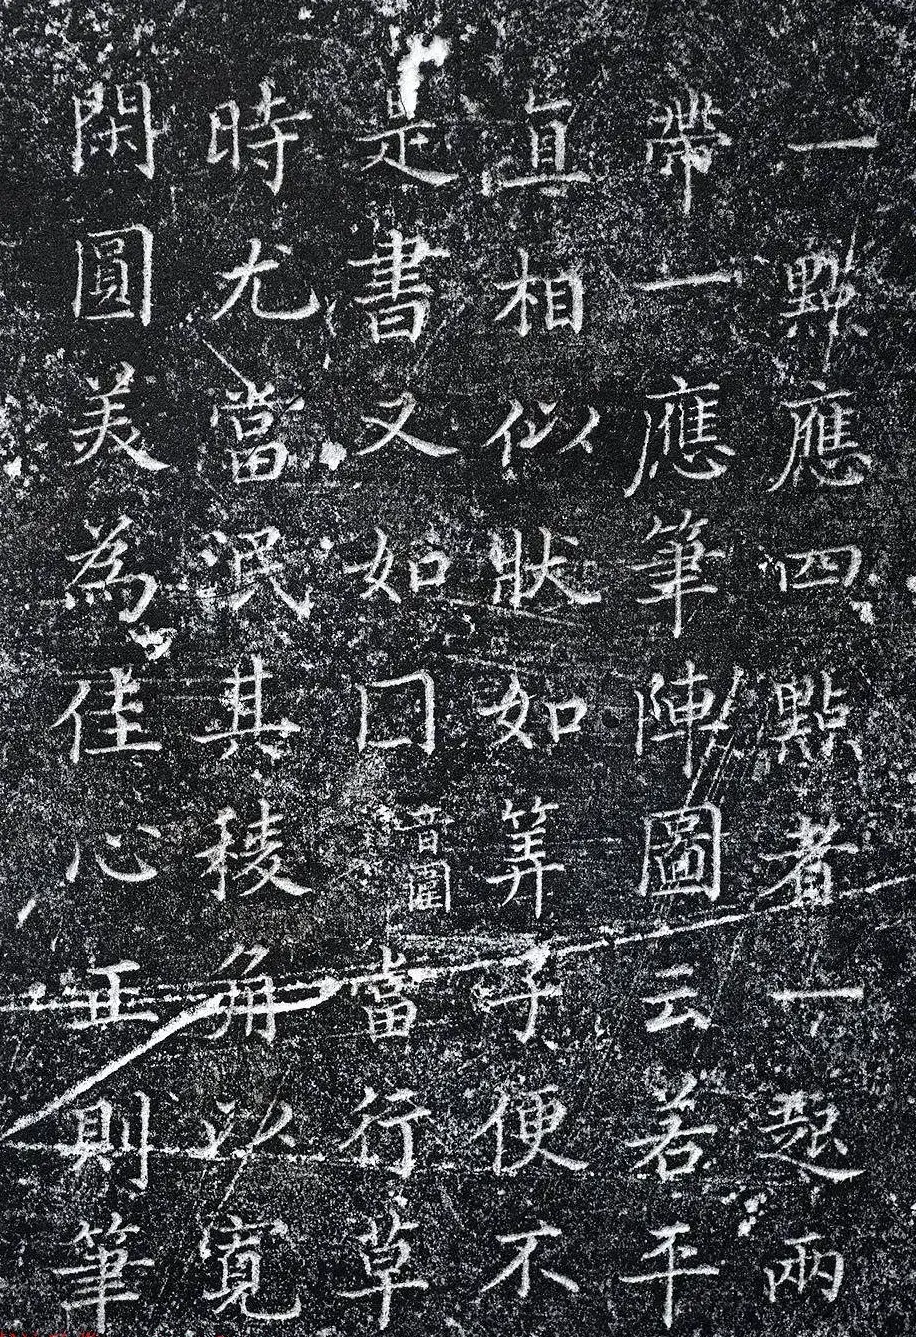 一點應四點者一起兩
帶一應筆陣圖云若平
直相似狀如筭子便不
是書又如囗音圍當行草
時尤當泯其稜角以寬
閑圓美為佳心正則筆